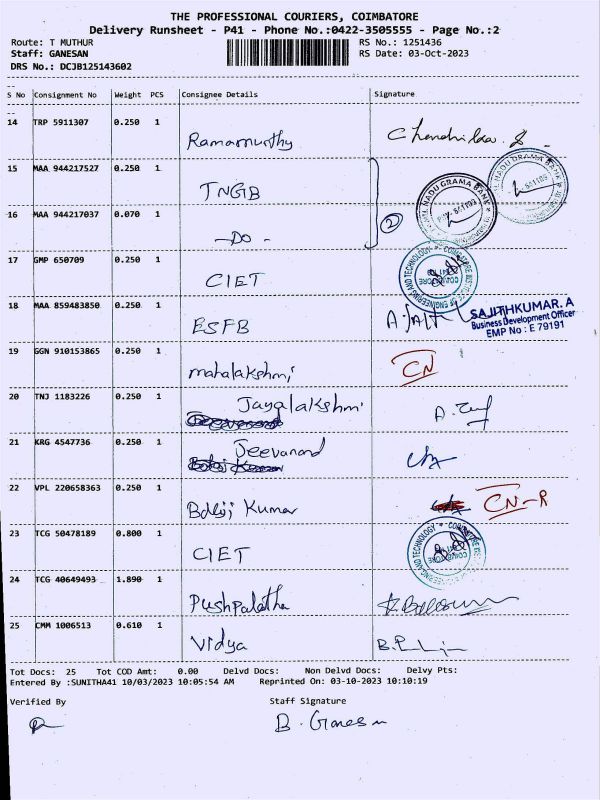 THE PROFESSIONAL COURIERS, COIMBATORE
Delivery Runsheet - P41 - Phone No.:0422-3505555 - Page No.:2
Route: T MUTHUR RS No.: 1251436
Staff: GANESAN RS Date: 03-Oct-2023
DRS No.: DCJB125143602
S No Consignment No Weight PCS Consignee Details Signature
14 TRP 5911307 0.250 1
Ramamurthy Chandrika
15 MAA 944217527 0.250 1
TNGB
16 MAA 944217037 0.070 1
-DO- 2
NADU GRAMA BANK
NADU GRAMA BANK
17 GMP 650709 0.250 1
CIET
COIMBATORE INSTITUTE OF ENGINEERING AND TECHNOLOGY
18 MAA 859483850 0.250 1
ESFB
SAJITHKUMAR. A
Business Development Officer
EMP No : E 79191
19 GGN 910153865 0.250 1
mahalakshmi CN
20 TNJ 1183226 0.250 1
Jayalakshmi
21 KRG 4547736 0.250 1
Jeevanand
22 VPL 220658363 0.250 1
Balaji Kumar CN-R
23 TCG 50478189 0.800 1
CIET
24 TCG 40649493 1.890 1
Pushpalatha
25 CMM 1006513 0.610 1
Vidya
Tot Docs: 25 Tot COD Amt: 0.00 Delvd Docs: Non Delvd Docs: Delvy Pts:
Entered By :SUNITHA41 10/03/2023 10:05:54 AM Reprinted On: 03-10-2023 10:10:19
Verified By Staff Signature
B. Ganesan